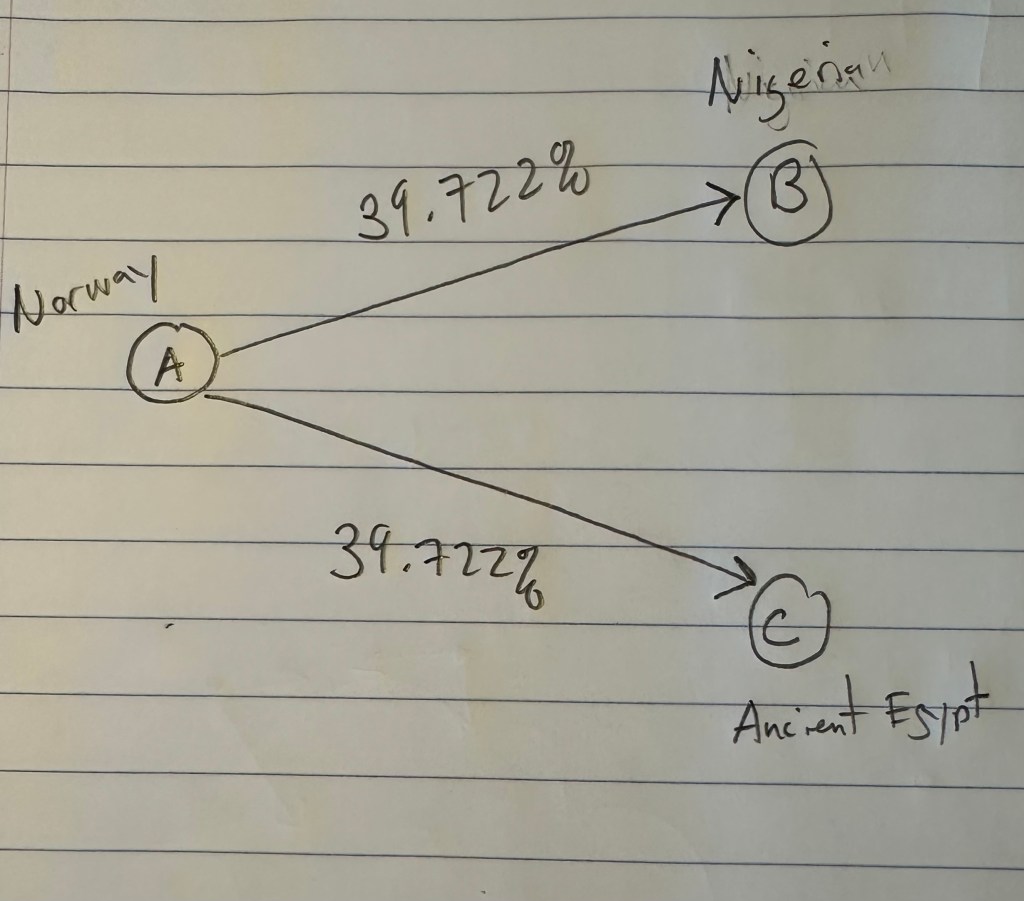 Nigerian
39.722%
B
Norway
A
39.722%
C
Ancient Egypt